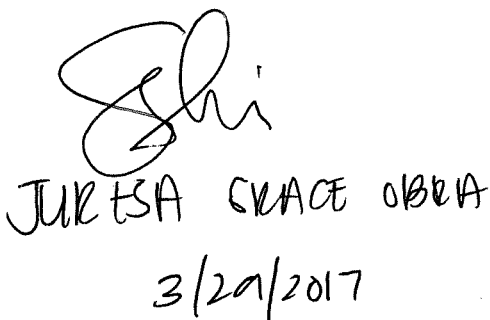 JURESA GRACE OBRA
3/29/2017